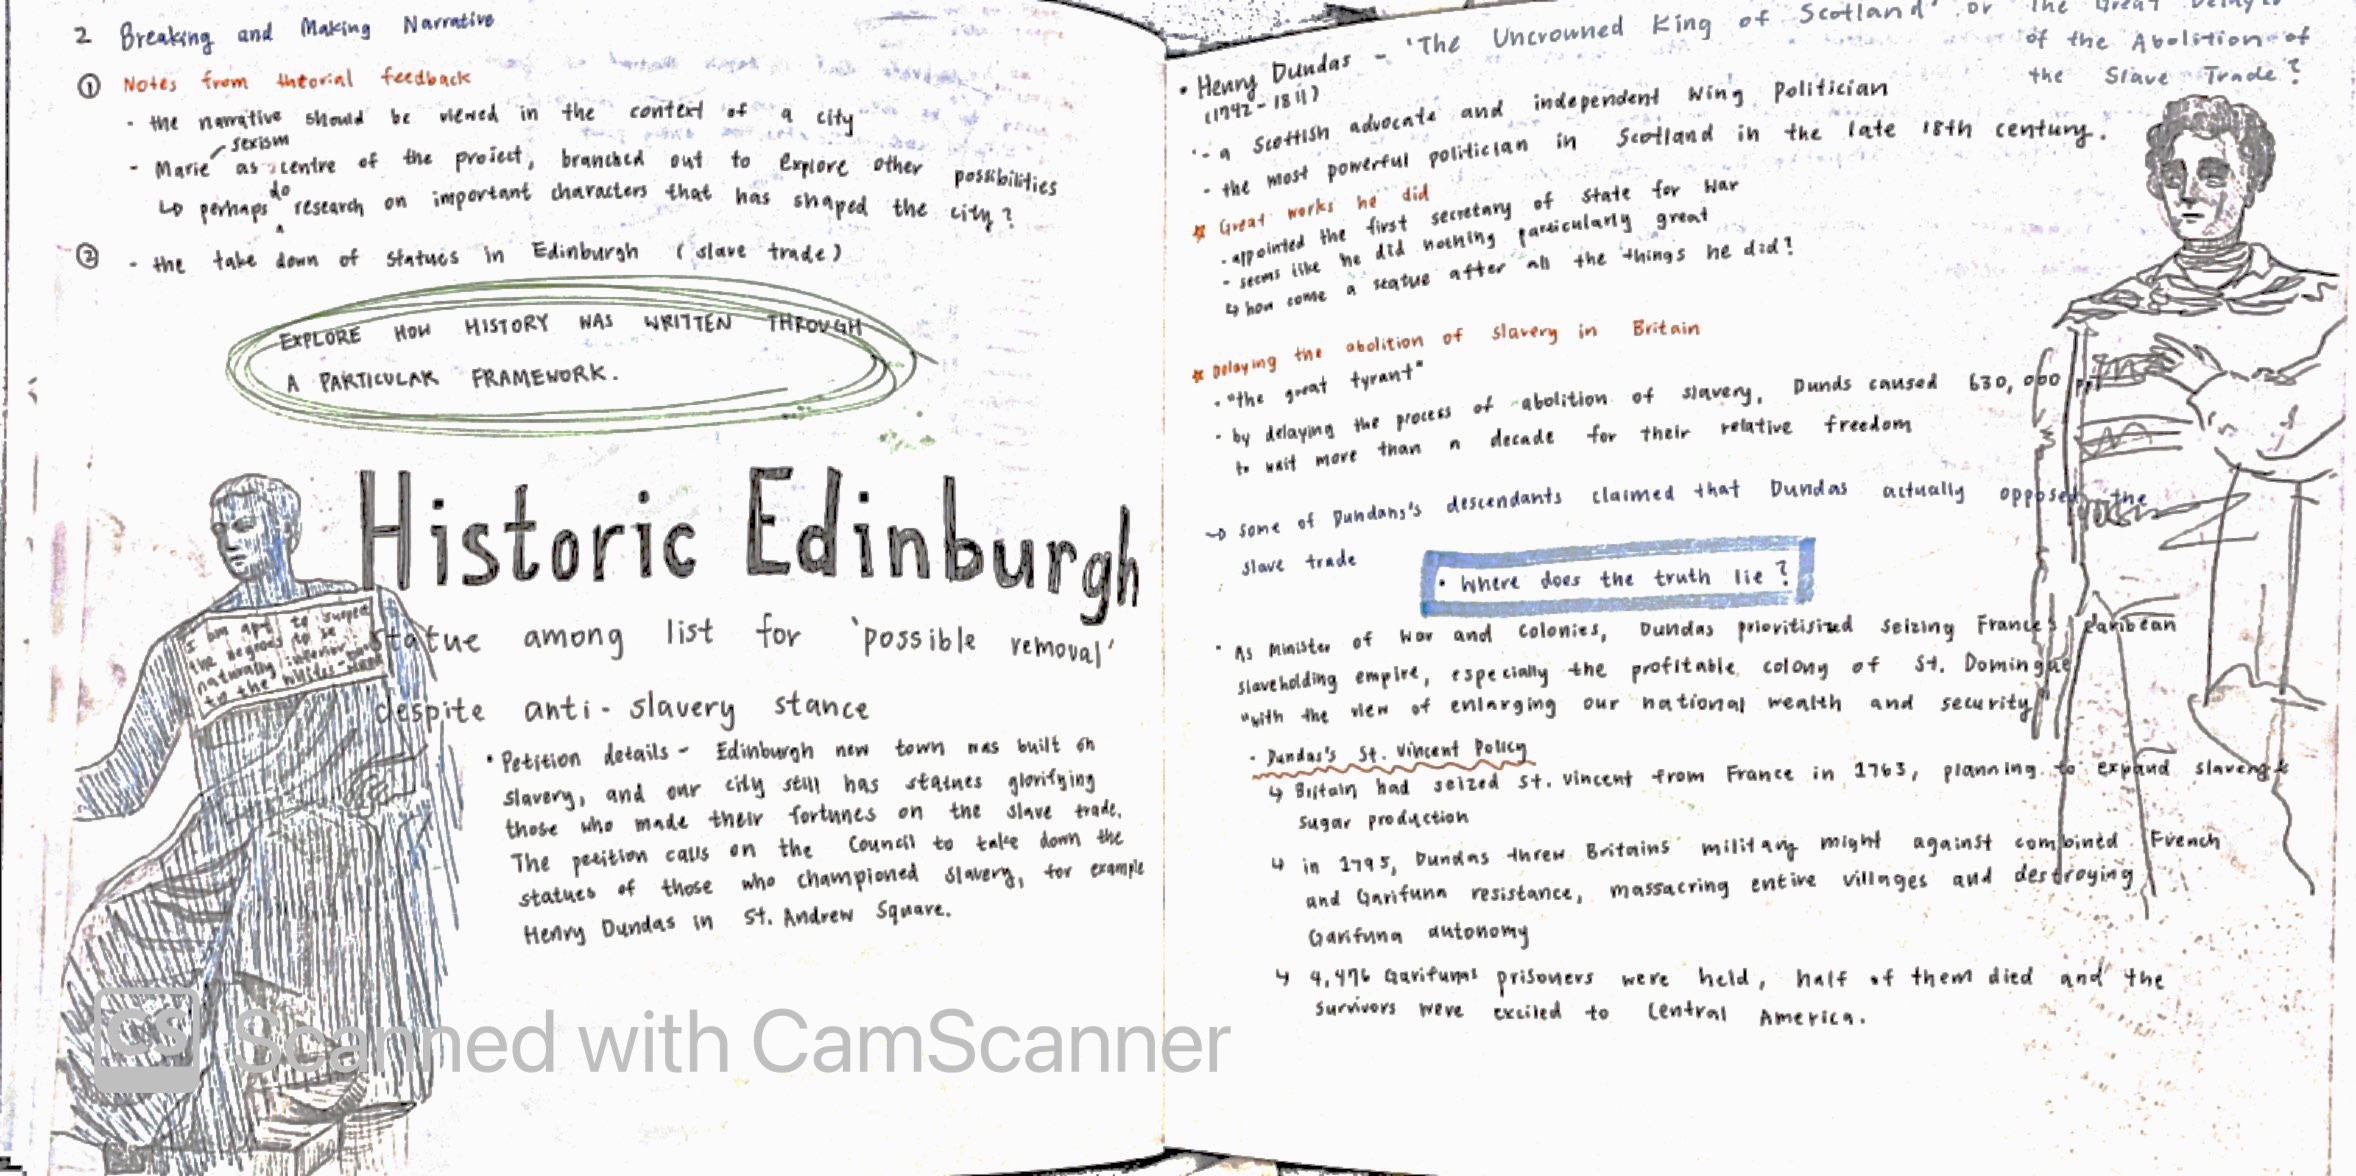 2 Breaking and Making Narrative
① Notes from tutorial feedback
- the narrative should be viewed in the context of a city
sexism
- Marie as centre of the project, branched out to explore other possibilities
do
↳ perhaps research on important characters that has shaped the city?
② - the take down of statues in Edinburgh (slave trade)
EXPLORE HOW HISTORY WAS WRITTEN THROUGH
A PARTICULAR FRAMEWORK.
Historic Edinburgh
statue among list for 'possible removal'
despite anti-slavery stance
I am apt to suspect
the negroes to be
naturally inferior
to the whites -
• Petition details - Edinburgh new town was built on
slavery, and our city still has statues glorifying
those who made their fortunes on the slave trade.
The petition calls on the Council to take down the
statues of those who championed slavery, for example
Henry Dundas in St. Andrew Square.
• Henry Dundas - 'The Uncrowned King of Scotland' or The Great Delayer
of the Abolition of
the Slave Trade?
(1742-1811)
- a Scottish advocate and independent Wing Politician
- the most powerful politician in Scotland in the late 18th century.
* Great works he did
- appointed the first secretary of State for War
- seems like he did nothing particularly great
↳ how come a statue after all the things he did?
* Delaying the abolition of slavery in Britain
• "the great tyrant"
• by delaying the process of abolition of slavery, Dunds caused 630,000 ppl
to wait more than a decade for their relative freedom
→ Some of Dundans's descendants claimed that Dundas actually opposed the
slave trade
• Where does the truth lie?
• As Minister of War and Colonies, Dundas prioritisized seizing France's Caribean
slaveholding empire, especially the profitable colony of St. Domingue
"with the view of enlarging our national wealth and security"
• Dundas's St. Vincent Policy
↳ Britain had seized St. Vincent from France in 1763, planning to expand slavery &
sugar production
↳ in 1795, Dundas threw Britains military might against combined French
and Garifuna resistance, massacring entire villages and destroying
Garifuna autonomy
↳ 4,476 Garifunas prisoners were held, half of them died and the
survivors were exciled to Central America.
CS Scanned with CamScanner